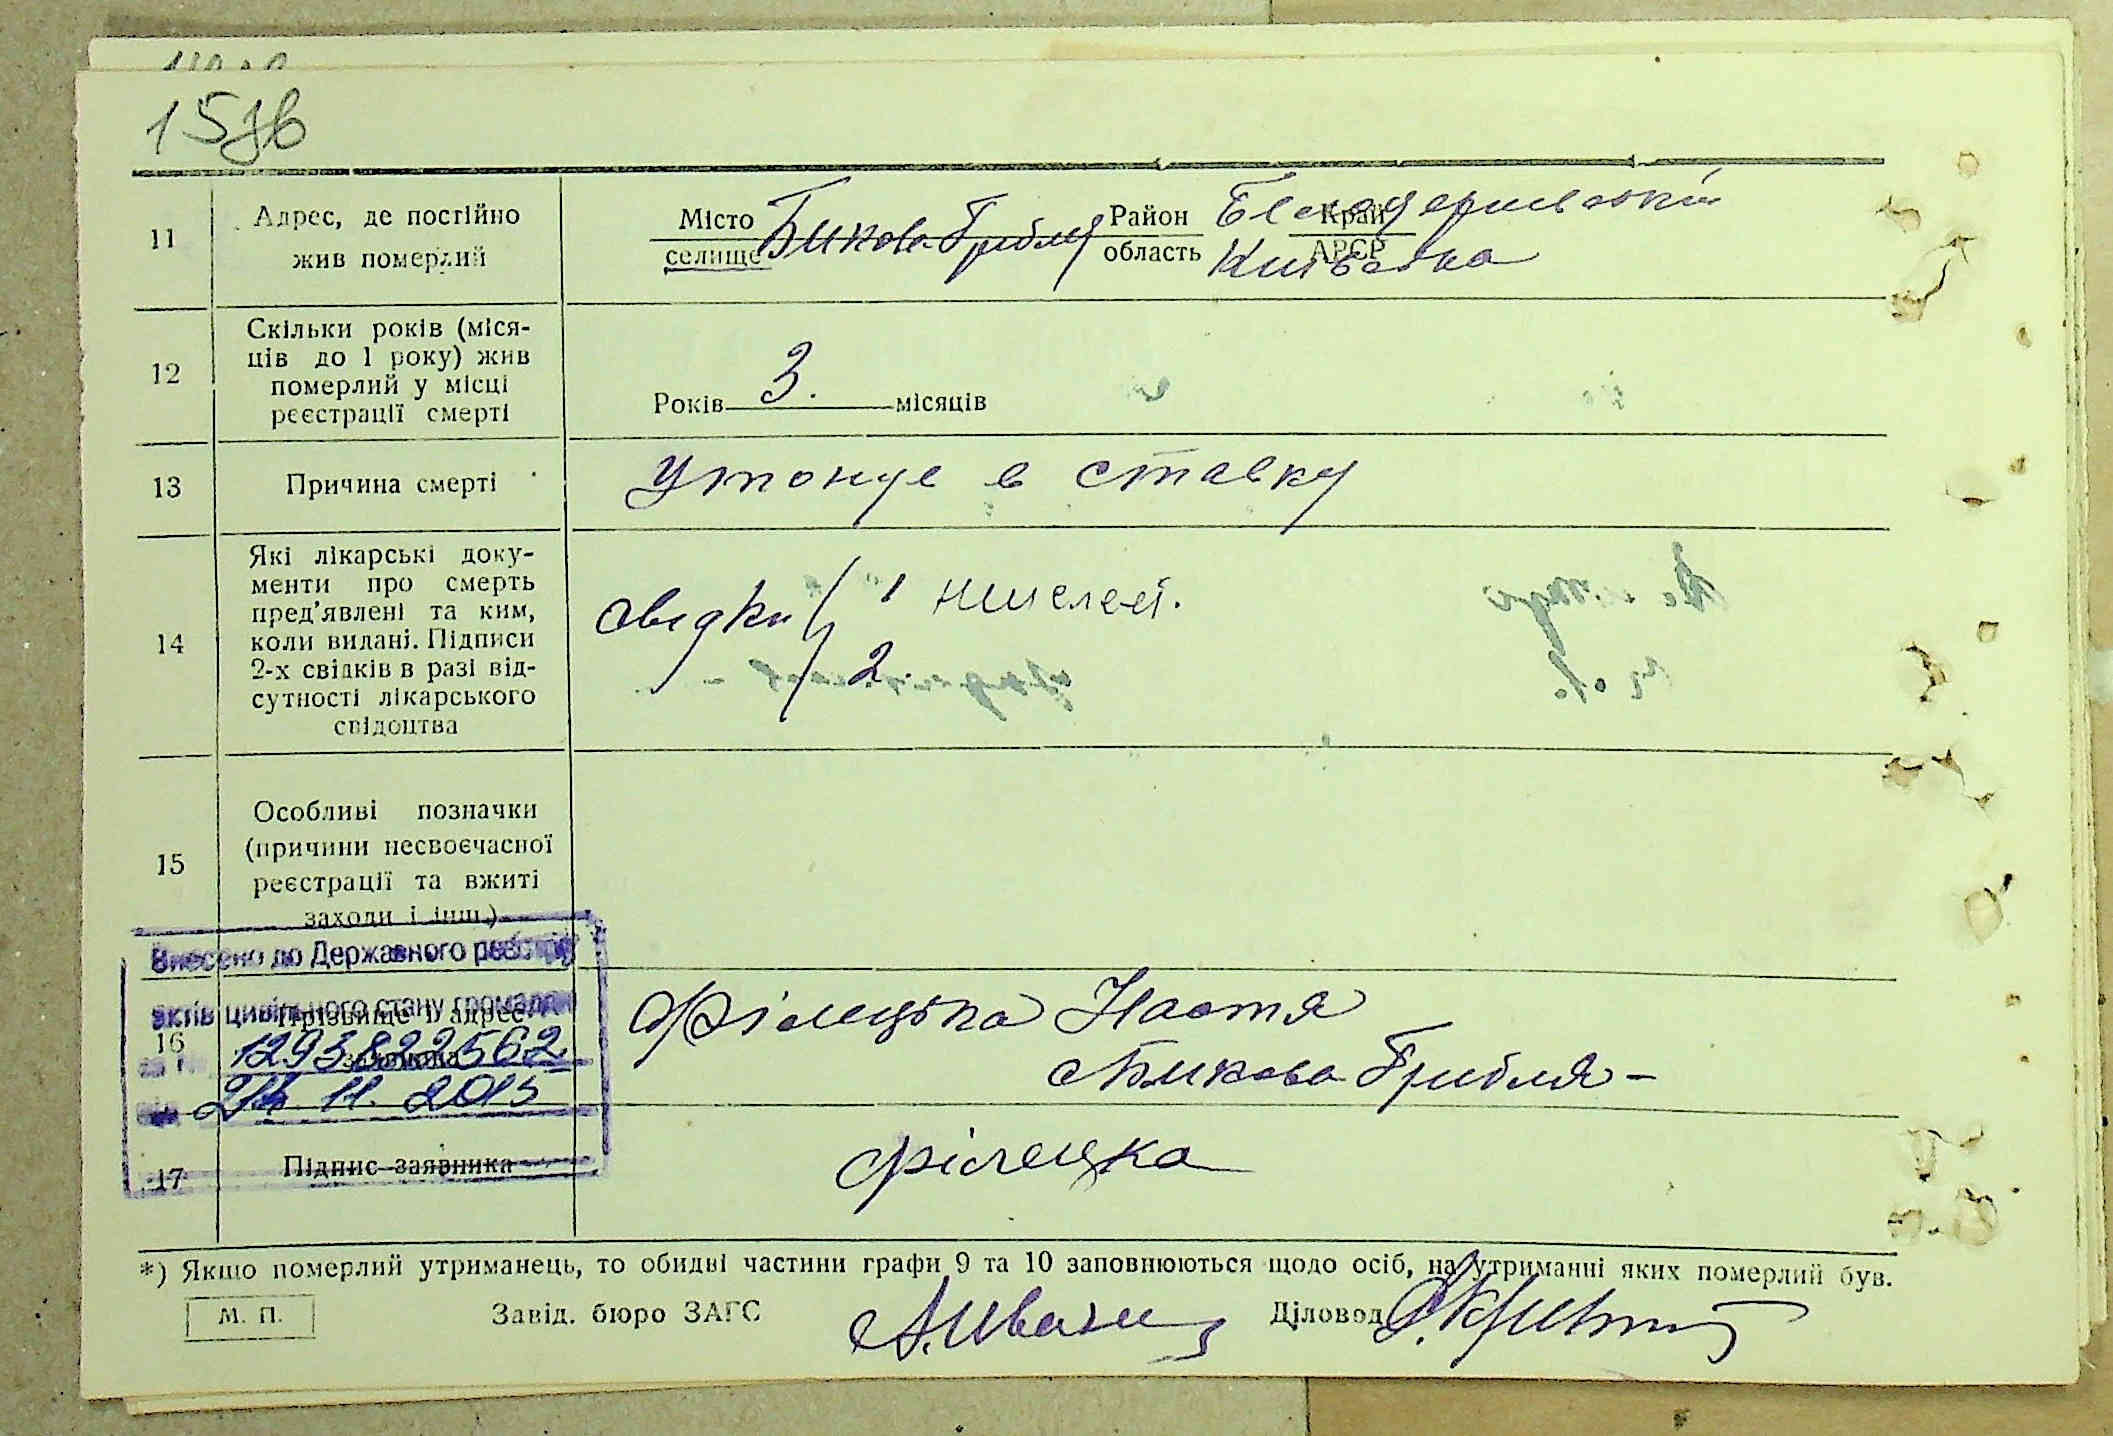 157в
11
Адрес, де постійно
жив померлий
Місто Бикова-Гребля Район Білоцерківський Край
селище область Київська АРСР
12
Скільки років (міся-
ців до 1 року) жив
померлий у місці
реєстрації смерті
Років 3. місяців
13
Причина смерті
Утонув в ставку
14
Які лікарські доку-
менти про смерть
пред’явлені та ким,
коли видані. Підписи
2-х свідків в разі від-
сутності лікарського
свідоцтва
Свідки 1
2
15
Особливі позначки
(причини несвоєчасної
реєстрації та вжиті
заходи і інш.)
Внесено до Державного реєстру
актів цивільного стану громадян
16
Прізвище і адрес
заявника
1293822562
11. 2015
Філецька Настя
Бикова Гребля -
17
Підпис заявника
Філецка
*) Якщо померлий утриманець, то обидві частини графи 9 та 10 заповнюються щодо осіб, на утриманні яких померлий був.
М. П.
Завід. бюро ЗАГС
Діловод